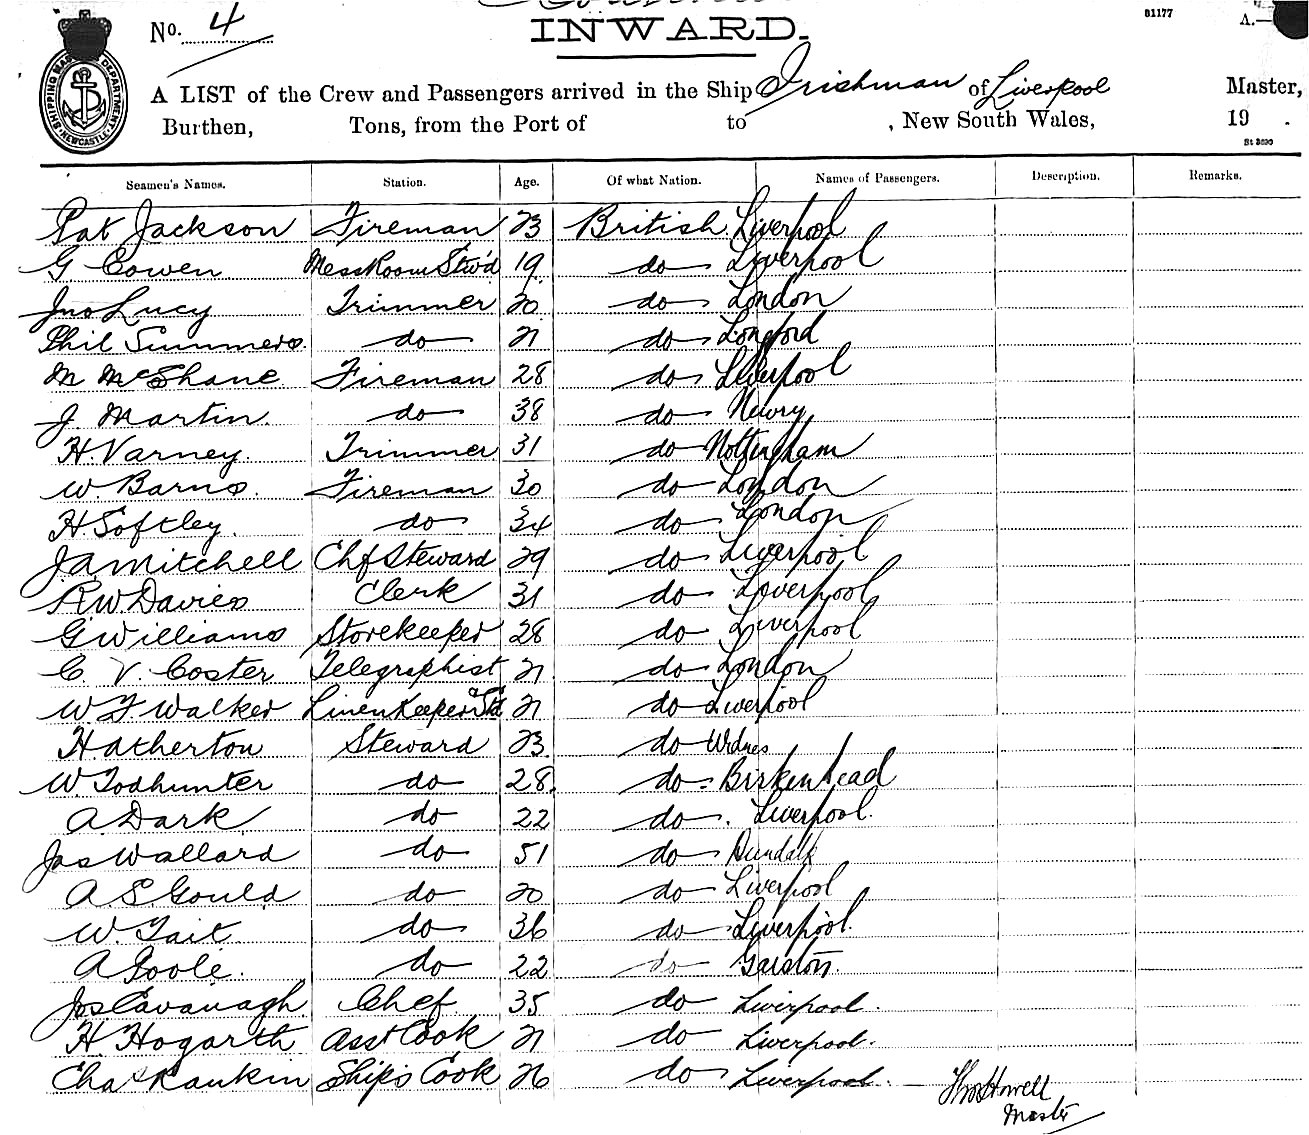 No. 4
INWARD.
81177
A.—
SHIPPING MASTER'S DEPARTMENT NEWCASTLE
A LIST of the Crew and Passengers arrived in the Ship Irishman of Liverpool Master,
Burthen, Tons, from the Port of to , New South Wales, 19 .
St 3690
Seamen's Names. Station. Age. Of what Nation. Names of Passengers. Description. Remarks.
Pat Jackson Fireman 23 British Liverpool
G Cowen Mess Room Stw'd 19 do Liverpool
Jno Lucy Trimmer 20 do London
Phil Summers do 21 do Longford
M McShane Fireman 28 do Liverpool
J. Martin do 38 do Newry
H. Varney Trimmer 31 do Nottingham
W. Barns. Fireman 30 do London
H. Softley do 34 do London
J A Mitchell Chf Steward 29 do Liverpool
R W Davies Clerk 31 do Liverpool
G Williams Storekeeper 28 do Liverpool
C. V. Coster Telegraphist 21 do London
W F Walker Linen Keeper & Std 21 do Liverpool
H Atherton Steward 23 do Widnes
W. Todhunter do 28 do Birkenhead
A. Dark do 22 do Liverpool.
Jas Wallard do 51 do Dundalk
A S Gould do 20 do Liverpool
W. Tait do 36 do Liverpool.
A Poole. do 22 do Garston.
Jos Cavanagh Chef 35 do Liverpool.
H. Hogarth Asst Cook 21 do Liverpool.
Chas Rankin Ship's Cook 26 do Liverpool.
Thos Howell
Master